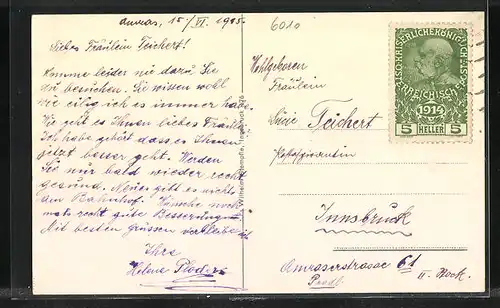 Amras, 15/VI. 1915.
6010
Liebes Fräulein Teichert!
Komme leider nie dazu Sie
zu besuchen. Sie wissen wohl
wie eilig ich es immer habe.
Wie geht es Ihnen liebes Fräul.
Ich habe gehört dass es Ihnen
jetzt besser geht. Werden
Sie nur bald wieder recht
gesund. Neues gibt es nichts
am Bahnhof. Wünsche noch-
mals recht gute Besserung
Mit besten grüssen verbleibe ich
Ihre
Helene
Wohlgeboren
Fräulein
Teichert
Innsbruck
Amraserstrasse 61
Pradl. II. Stock.
1914
5 HELLER 5